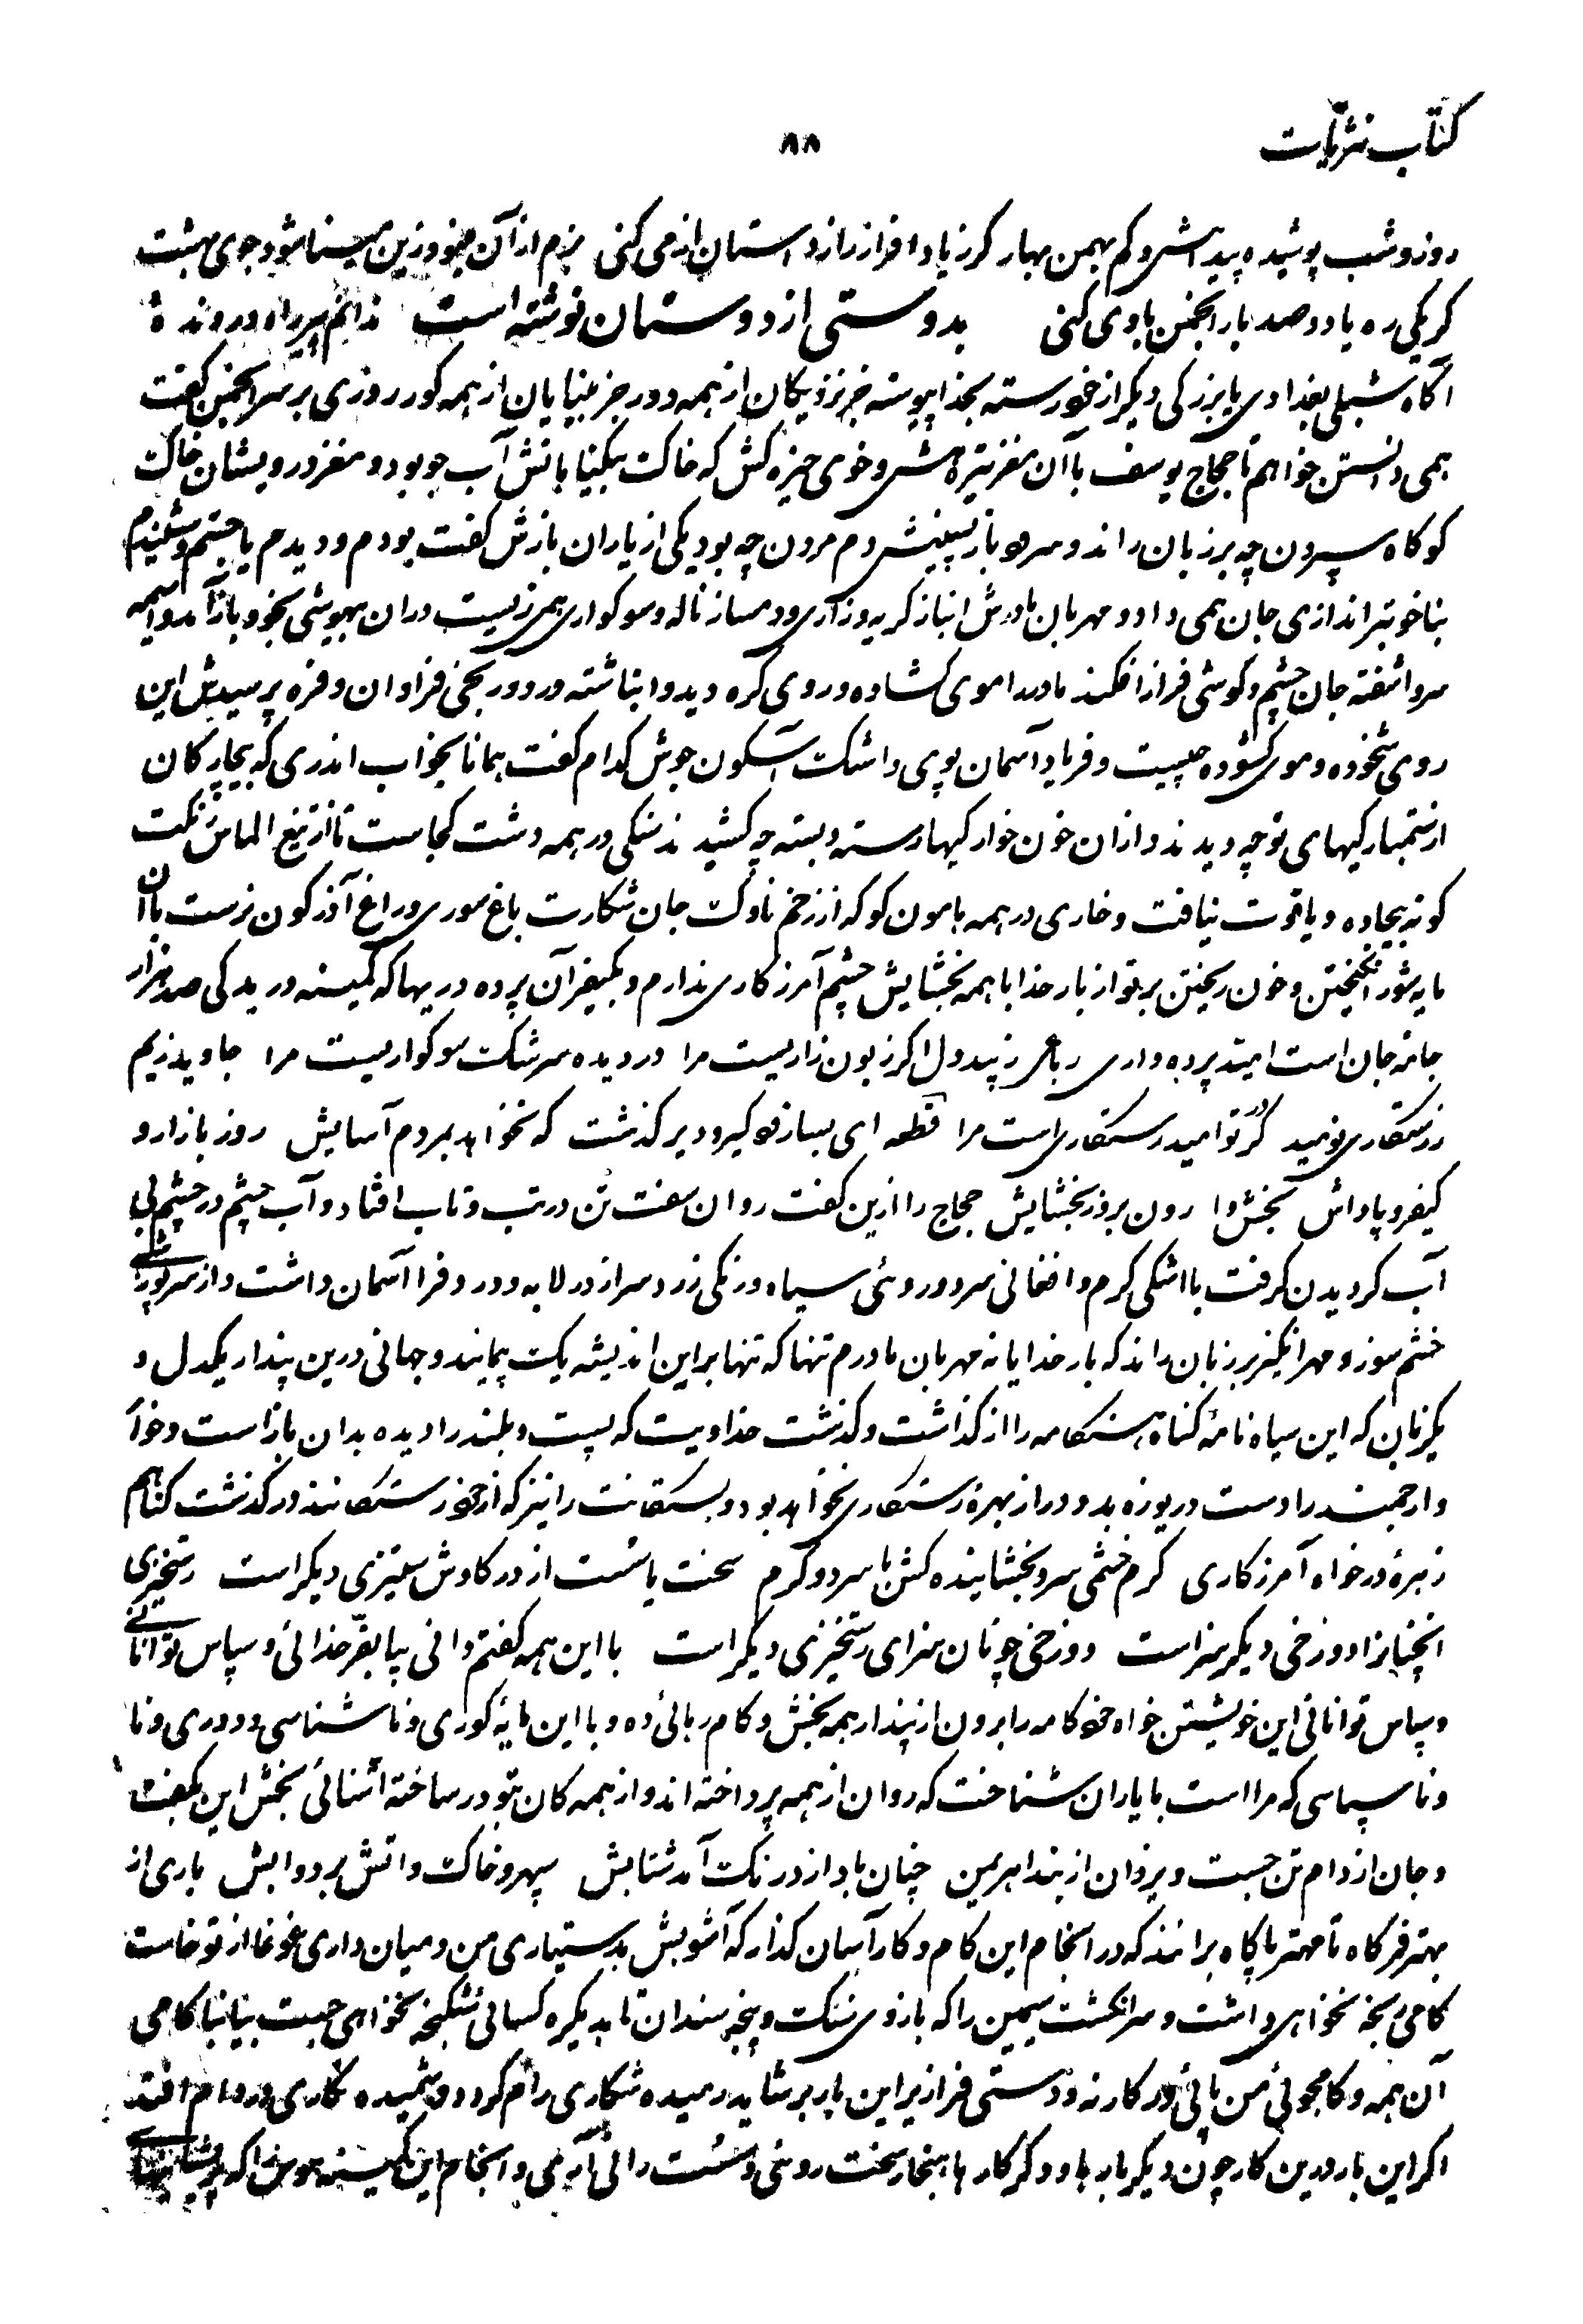 کتاب نثریات
۸۸
روز و شب پوشیده پیداستی و کم بهمن بهار گر زیاد افراز راز داستان از می کنی بزم از آن مینو وزین مینا شود جوی بهشت
گر یکی ره یا دو صد بار انجمن با وی کنی بدوستی از دوستان نوشته است ندانم پیر راه و رونده
آگاه شبلی بغدادی یا بزرگی دیگر از خود رسته بخدا پیوسته جز نزدیکان از همه دور جز بینایان از همه کور روزی بر سر انجمن گفت
همی دانستن خواهم تا حجاج یوسف با آن مغز تیره هش و خوی خیره کش که خاک بیگناهانش آب جو بود و مغز درویشان خاک
کو گاه سپردن چه بر زبان راند و سرود باز پسینش دم مردن چه بود یکی از یاران بازش گفت بودم و دیدم یا جستم و شنیدم
بناخوبتر اندازی جان همی داد و مهربان مادرش انباز گریه و زاری و دمساز ناله و سوگواری همی زیست در آن بیهوشی بخود باز آمد و آسیمه
سر و آشفته جان چشم و گوشی فراز افکند مادر را موی گشاده و روی کرده دید و انباشته درد و ریختی فراوان و فزه پرسیدش این
روی شخوده و موی گشوده چیست و فریاد آسمان پوی و اشک آبسکون جوش کدام گفت همانا بخواب اندری که بیچارگان
از ستمبارگیهای تو چه دیدند و از آن خون خوارگیها رسته و بسته چه کشید ندسنگی در همه دشت کجاست تا از تیغ الماس رنگت
گونه بیجاده و یاقوت نیافت و خاری در همه هامون کو که از زخم ناوک جان شکارت باغ سوری و راغ آذرگون نرست با آن
مایه شور انگیختن و خون ریختن بر تو از بار خدا با همه بخشایش چشم آمرزگاری ندارم و بکیفر آن پرده دریها که کمینه دریدگی صد هزار
جامه جان است امید پرده داری رباعی ز پند دل اگر زبون زاریست مرا در دیده سرشک سوگواریست مرا جاوید زیم
ز رستگاری نومید گر از تو امید رستگاری است مرا قطعه ای بساز فو گیر و دیر گذشت که نخواهد بمردم آسایش روز بازار و
کیفر و پاداش بخش وا رون بروز بخشایش حجاج را ازین گفت روان سفت تن در تب و تاب افتاد و آب چشم در چشم بی
آب گردیدن گرفت با اشکی گرم و افغانی سرد و روئی سیاه و رنگی زرد سر از در لابه و درد فرا آسمان داشت و از سر پوزش
خشم سوز و مهر انگیز بر زبان راند که بار خدایا نه مهربان مادرم تنها که تنها بر این اندیشه یک پیمانند و جهانی درین پندار یکدل و
یکزبان که این سیاه نامه گناه هنگامه را از گذاشت و گذشت خداویت که پست و بلند را دیده بدان باز است و خوار
و ارجمند را دست دریوزه بدو دراز بهره رستگاری نخواهد بود و بستگانت را نیز که از خود رستگانند در گذشت گناهم
زهره درخواه آمرزگاری گرم خشمی سرد بخشاینده کش با سرد و گرم سخت پاسست از در کاوش ستیزی دیگر است رستخیزی
اینچنین را دوزخی دیگر سزاست دوزخی چونان سزای رستخیزی دیگر است با این همه گفتم دانی بیا بفر خدائی و سپاس توانائی
و سپاس توانائی این خویشتن خواه خودکامه را برون از پندار همه بخش و کام ربائی ده و با این مایه کوری و ناشناسی و دوری و نا
و ناسپاسی که مرا است با یاران شناخت که روان از همه پرداخته اند و از همه کان بتو در ساخته آشنائی بخش این بگفت
و جان از دام تن جست و یزدان از بند اهریمن چنان باد از درنگ آمد شتابش سپهر و خاک و آتش برد و آبش باری از
بهتر فرگاه تا مهتر پایگاه برانند که در انجام این کام و کار آسان گذار که آشوبش بدستیاری من و میان داری غوغا از تو خاست
کامی بجد نخواهی داشت و سرانگشت سیمین را که بازوی سنگ و پنجه سندان تابد یکره کسالی شکنجه نخواهی جست بنیان ناکامی
آن همه و کامجوئی من پائی در کار نه و دستی فراز بر این بار بر شاید رمیده شکاری رام گردد و شمیده نگاری در دام افتد
اگر این بار درین کار چون دیگر بارها و دگر کارها بهنجار سخت روئی و سست رائی آرمی و انجام این کمینه هوس را که